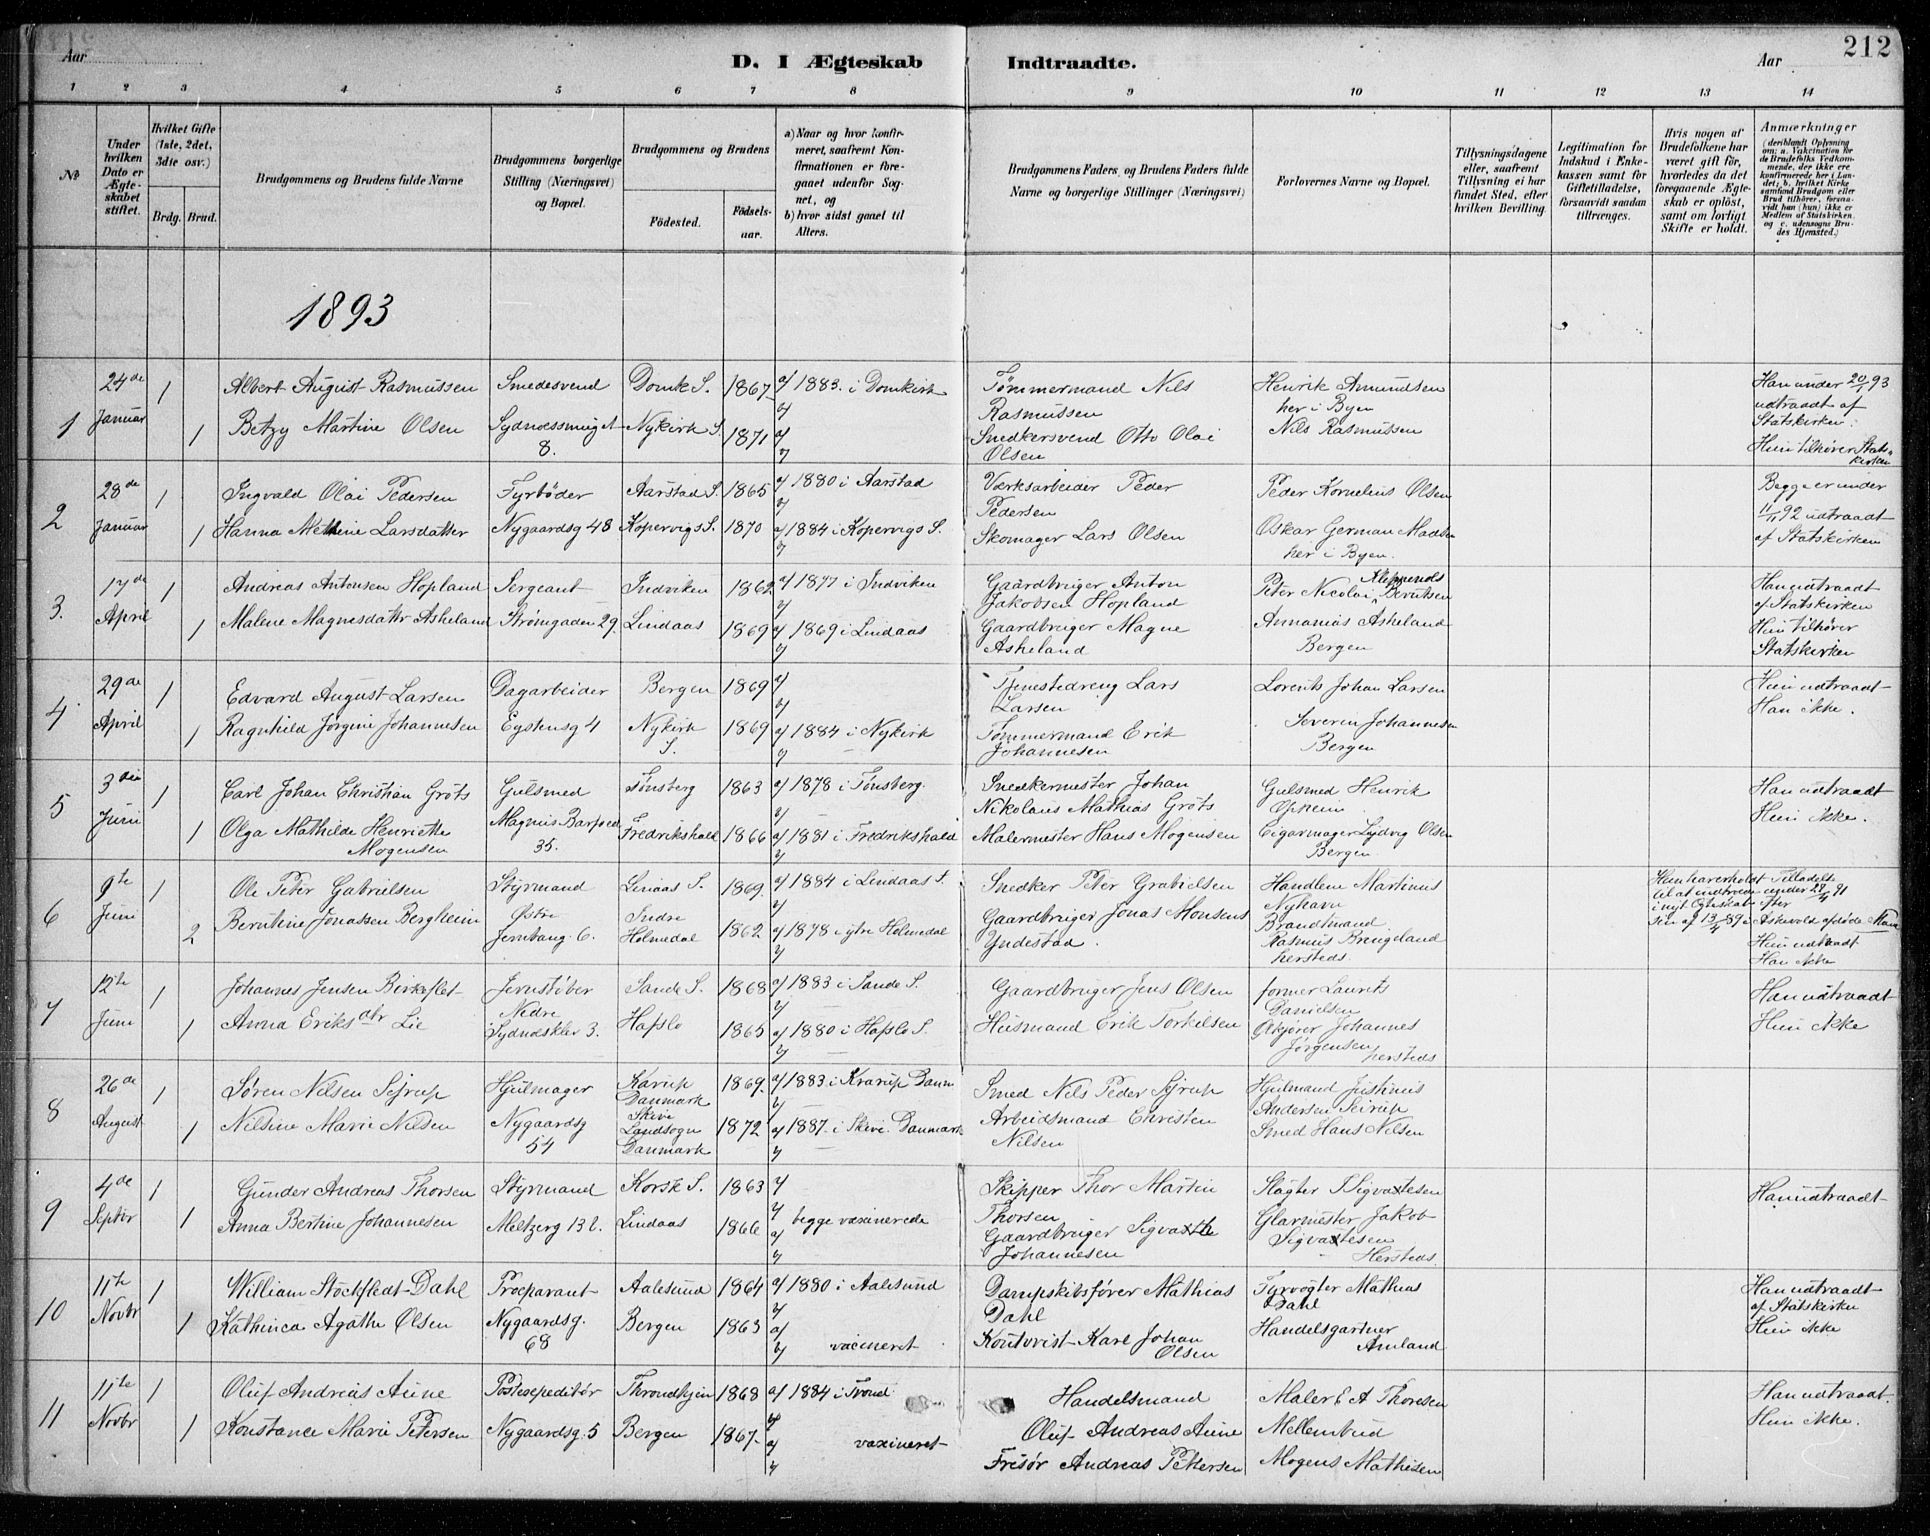 212
Aar
D. I Ægteskab Indtraadte.
Aar
1 2 3 4 5 6 7 8 9 10 11 12 13 14
№
Under hvilken Dato er Ægteskabet stiftet.
Hvilket Gifte (1ste, 2det, 3die osv.)
Brdg. Brud.
Brudgommens og Brudens fulde Navne
Brudgommens borgerlige Stilling (Næringsvei) og Bopæl.
Brudgommens og Brudens
Fødested. Fødselsaar.
a) Naar og hvor konfirmeret, saafremt Konfirmationen er foregaaet udenfor Sognet, og
b) hvor sidst gaaet til Alters.
Brudgommens Faders, og Brudens Faders fulde Navne og borgerlige Stillinger (Næringsvei)
Forlovernes Navne og Bopæl.
Tillysningsdagene eller, saafremt Tillysning ei har fundet Sted, efter hvilken Bevilling.
Legitimation for Indskud i Enkekassen samt for Giftetilladelse, forsaavidt saadan tiltrænges.
Hvis nogen af Brudefolkene har været gift før, hvorledes da det foregaaende Ægteskab er opløst, samt om lovligt Skifte er holdt.
Anmærkninger (deriblandt Oplysning om: a. Vakcination for de Brudefolks Vedkommende, der ikke ere konfirmerede her i Landet; b. hvilket Kirkesamfund Brudgom eller Brud tilhører, forsaavidt han (hun) ikke er Medlem af Statskirken, og c. udensogns Brudes Hjemsted.)
1893
1 24de Januar 1 Albert August Rasmussen Smedesvend Domk S. 1867 a/ 1883 i Domkirk Tømmermand Nils Rasmussen Henrik Amundsen her i Byen Han under 20/1 93 udtraadt af Statskirken.
1 Betzy Martine Olsen Sydnessmuget 8. Nykirk S. 1871 Snedkersvend Otto Olai Olsen Nils Rasmussen Hun tilhører Statskirken
2 28de Januar 1 Ingvald Olai Pedersen Fyrbøder Aarstad S. 1865 a/ 1880 i Aarstad Værksarbeider Peder Pedersen Peder Kornelius Olsen Begge er under 11/11 92 udtraadt af Statskirken
1 Hanna Methine Larsdatter Nygaardsg 48 Kopervigs S. 1870 a/ 1884 i Kopervigs S. Skomager Lars Olsen Oskar German Madsen her i Byen.
3. 17de April 1 Andreas Antonsen Hopland Sergeant Indviken 1862 a/ 1877 i Indviken Gaardbruger Anton Jakobsen Hopland Peter Nicolai Berntsen Han udtraadt af Statskirken
1 Malene Magnesdattr Asheland Strømgaden 29. Lindaas 1869 a/ 1869 i Lindaas Gaardbruger Magne Asheland Annanias Asheland Bergen Hun tilhører Statskirken
4 29de April 1 Edvard August Larsen Dagarbeider Bergen 1869 Tjenestedreng Lars Larsen Lorents Johan Larsen Hun udtraadt Han ikke.
1 Ragnhild Jørgine Johannesen Egstensg 4 Nykirk S. 1869 a/ 1884 i Nykirk Tømmermand Erik Johannesen Severen Johannesen Bergen
5 3die Juni 1 Carl Johan Christian Grøts Gulsmed Tønsberg 1863 a/ 1878 i Tønsberg. Snedkermester Johan Nikolaus Mathias Grøts Gulsmed Henrik Opheim Han udtraadt
1 Olga Mathilde Henriette Mogensen Magnus Barfred 35. Fredrikshald 1866 a/ 1881 i Fredrikshald Malermester Hans Mogensen Cigarmager Lydvig Olsen Bergen. Hun ikke.
6 9te Juni 1 Ole Peter Gabrielsen Styrmand Linaas S. 1869. a/ 1884 i Lindaas S. Snedker Peter Grabielsen Handlene Martinus Nyhavn Hun haver holdt Tilladelse til at indtræde
2 Berntine Jonassen Bergheim Østre Jernbang. 6. Indre Holmedal 1862 a/ 1878 i ytre Holmedal Gaardbruger Jonas Monsens Yndestad. Brandtmand Rasmus Brengeland hersteds i Askevold afdøde Mand Hun udtraadt Han ikke
7 12te Juni 1 Johannes Jensen Birkeflet Jernstøber Sande S. 1868 a/ 1883 i Sande S. Gaardbruger Jens Olsen former Laurits Danielsen Han udtraadt
1 Anna Eriksdtr Lie Nedre Sydneskler 3. Hafslo 1865 a/ 1880 i Hafslo S. Husmand Erik Torkilsen Johannes Jørgensen hersteds Hun ikke
8 26de August 1 Søren Nilsen Sejrup Hjulmager Karup Danmark 1869. a/ 1883 i Krarup Danm Smed Nils Peder Sejrup Hjulmand Justinus Andersen Seirup
1 Nilsine Marie Nilsen Nygaardsg 54 Skive Landsogn Danmark 1872 a/ 1887 i Skive. Danmark Arbeidsmand Christen Nilsen Smed Hans Nilsen
9 4de Septbr 1 Gunder Andreas Thorsen Styrmand Korsk S. 1863 Skipper Thor Martin Thorsen Slagter Sigvartesen Han udtraadt
1 Anna Bertine Johannesen Meltzerg 13 l. Lindaas 1866 begge vaxinerede Gaardbruger Sigvarth Johannesen Glarmester Jakob Sigvartesen Hersteds.
10 11te Novbr 1 William Stockfledt Dahl Præparant Aalesund 1864 a/ 1880 i Aalesund Dampskibsfører Mathias Dahl Fyrvogter Mathias Dahl Han udtraadt af Statskirken
1 Kathinca Agathe Olsen Nygaardsg. 68 Bergen 1863 vacineret Kontorist Karl Johan Olsen Handelsgartner Amland Hun ikke
11 11te Novbr 1 Oluf Andreas Aune Postexpeditør Throndhjem 1868 a/ 1884 i Trond. Handelsmand Oluf Andreas Aune Maler E A Thoresen Han udtraadt.
1 Konstance Marie Petersen Nygaardsg. 5 Bergen 1867. vaxineret Frisør Andreas Pettersen Mellembud Mogens Mathisen Hun ikke.